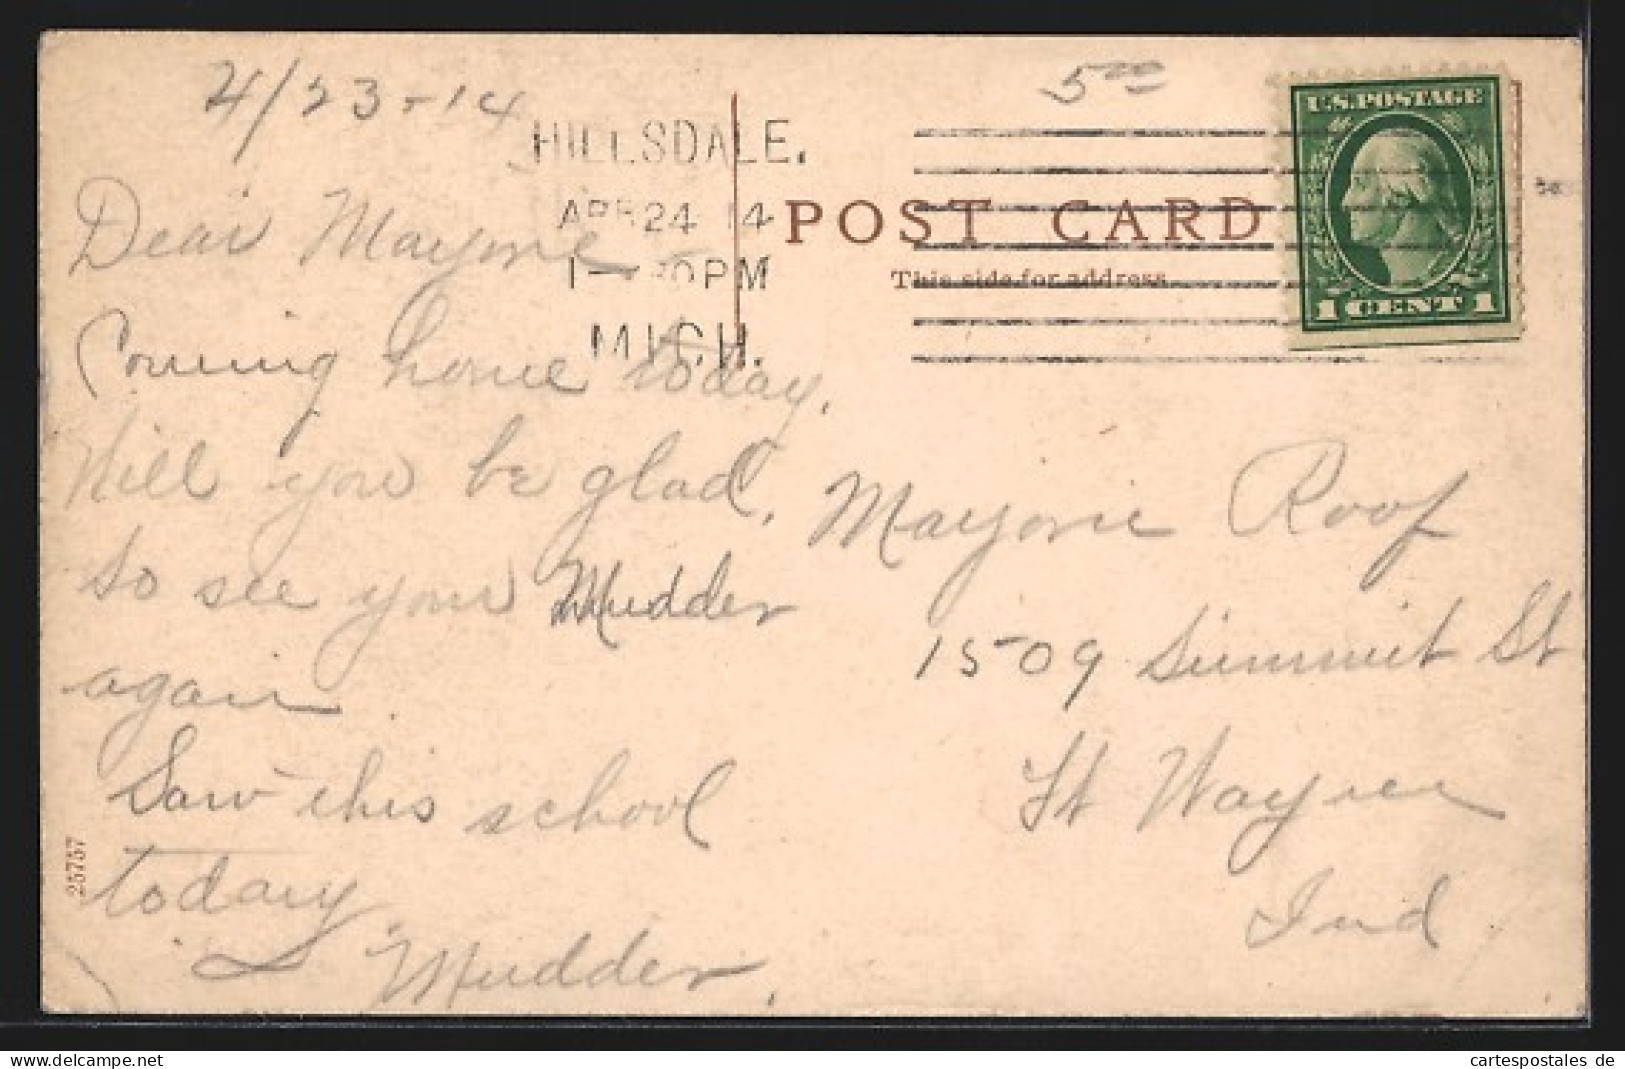 4/23-14
5 00
HILLSDALE.
APR 24 14
1 - 30 PM
MICH.
U.S. POSTAGE
1 CENT 1
POST CARD
This side for address.
Dear Marjorie
Coming home today.
Will you be glad
to see your Mudder
again
Saw this school
today
Mudder.
Marjorie Roof
1509 Summit St
Ft Wayne
Ind.
25757
cartespostales de